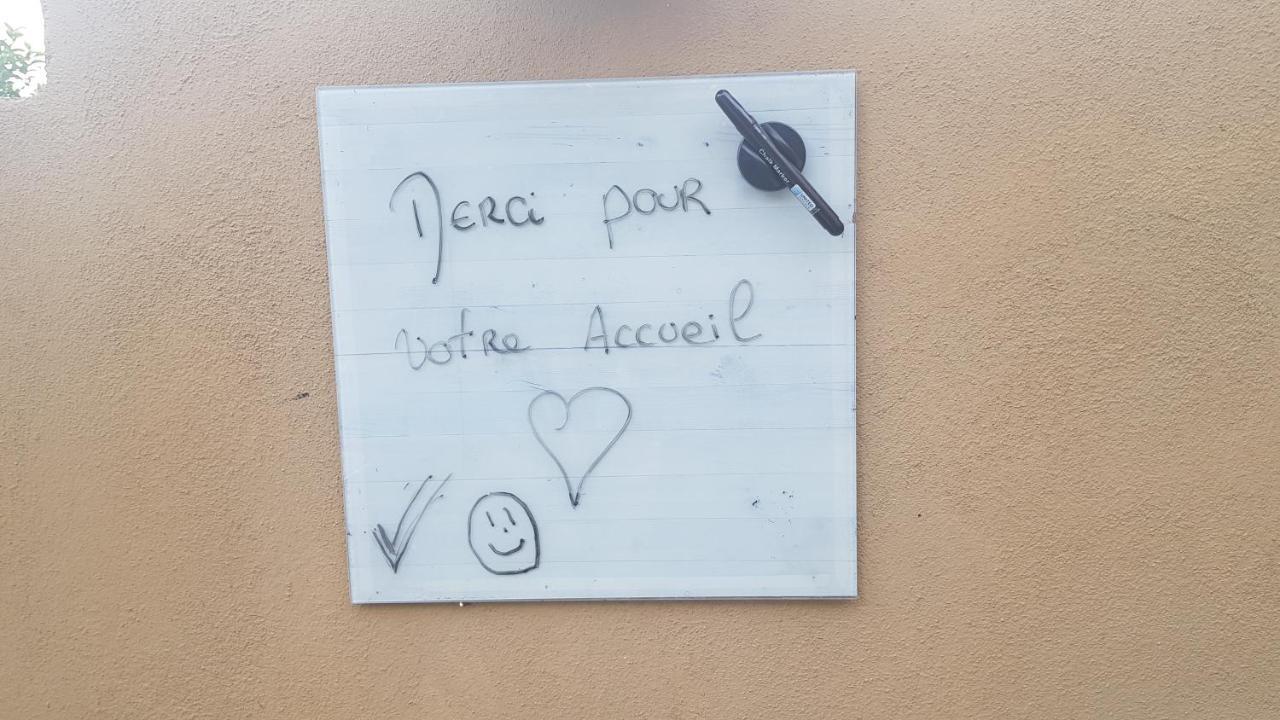 Merci pour
votre Accueil
Chalk Marker